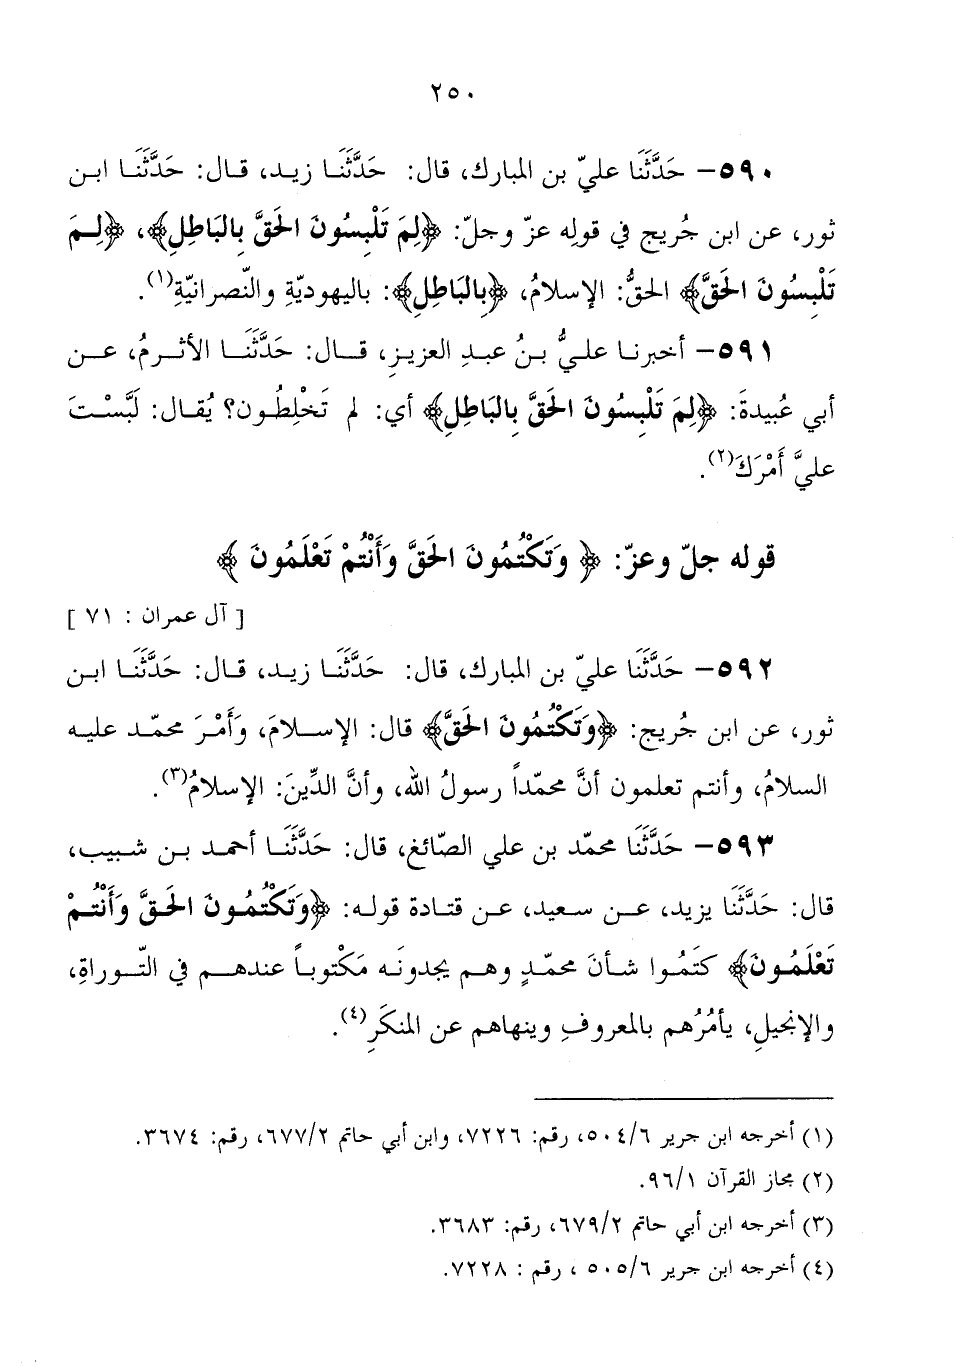 ٢٥٠
٥٩٠– حَدَّثَنَا عليّ بن المبارك، قال: حَدَّثَنَا زيد، قال: حَدَّثَنَا ابن
ثور، عن ابن جُريج في قولِه عزّ وجلّ: ﴿لِمَ تَلْبِسُونَ الحَقَّ بِالبَاطِلِ﴾، ﴿لِمَ
تَلْبِسُونَ الحَقَّ﴾ الحقُّ: الإسلامُ، ﴿بِالبَاطِلِ﴾: باليهوديّةِ والنّصرانيّةِ(١).
٥٩١– أخبرنا عليُّ بنُ عبدِ العزيزِ، قال: حَدَّثَنَا الأثرمُ، عن
أبي عُبيدةَ: ﴿لِمَ تَلْبِسُونَ الحَقَّ بِالبَاطِلِ﴾ أي: لم تَخْلِطُون؟ يُقال: لَبَّسْتَ
عليَّ أَمْرَكَ(٢).
قوله جلّ وعزّ: ﴿ وَتَكْتُمُونَ الحَقَّ وَأَنْتُمْ تَعْلَمُونَ ﴾
[ آل عمران : ٧١ ]
٥٩٢– حَدَّثَنَا عليّ بن المبارك، قال: حَدَّثَنَا زيد، قال: حَدَّثَنَا ابن
ثور، عن ابن جُريج: ﴿وَتَكْتُمُونَ الحَقَّ﴾ قال: الإسلامَ، وأَمْرَ محمّد عليه
السلامُ، وأنتم تعلمون أنَّ محمّداً رسولُ الله، وأنَّ الدِّينَ: الإسلامُ(٣).
٥٩٣– حَدَّثَنَا محمّد بن علي الصّائغ، قال: حَدَّثَنَا أحمد بن شبيب،
قال: حَدَّثَنَا يزيد، عن سعيد، عن قتادة قوله: ﴿وَتَكْتُمُونَ الحَقَّ وَأَنْتُمْ
تَعْلَمُونَ﴾ كتَمُوا شأنَ محمّدٍ وهم يجدونَه مَكْتوباً عندهم في التّوراةِ،
والإنجيلِ، يأمُرُهم بالمعروفِ وينهاهم عن المنكَرِ(٤).
(١) أخرجه ابن جرير ٥٠٤/٦، رقم: ٧٢٢٦، وابن أبي حاتم ٦٧٧/٢، رقم: ٣٦٧٤.
(٢) مجاز القرآن ٩٦/١.
(٣) أخرجه ابن أبي حاتم ٦٧٩/٢، رقم: ٣٦٨٣.
(٤) أخرجه ابن جرير ٥٠٥/٦ ، رقم : ٧٢٢٨.